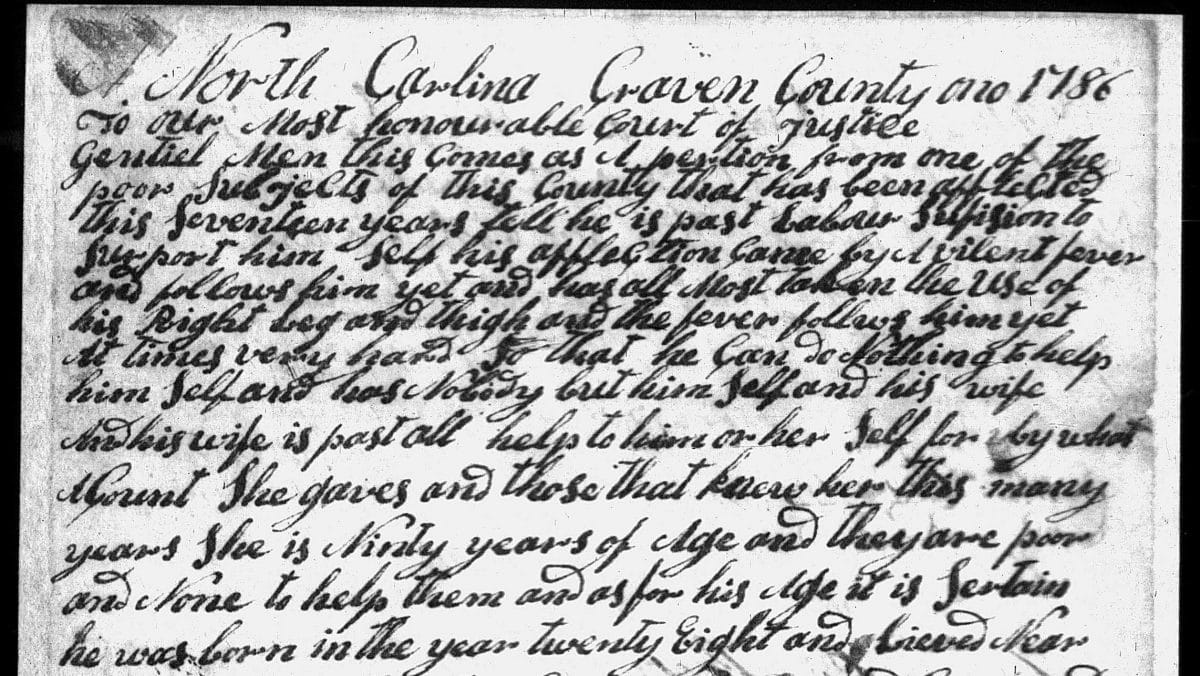 North Carlina Craven County ano 1786
To our Most honourable Court of Justice
Gentiel Men this Comes as A pertion from one of the
poor Subjects of this County that has been afflected
this Seventeen years tell he is past Labour Suffision to
Surport him Self his afflection Came by A vilent fever
and follows him yet and has all Most taken the Use of
his Right Leg and thigh and the fever follows him yet
At times very hard So that he Can do Nothing to help
him Self and has Nobody but him Self and his wife
And his wife is past all help to him or her Self for by what
ACount She gaves and those that knew her this many
years She is Ninty years of Age and they are poor
and None to help them and as for his Age it is Sertain
he was born in the year twenty Eight and Lieved Near